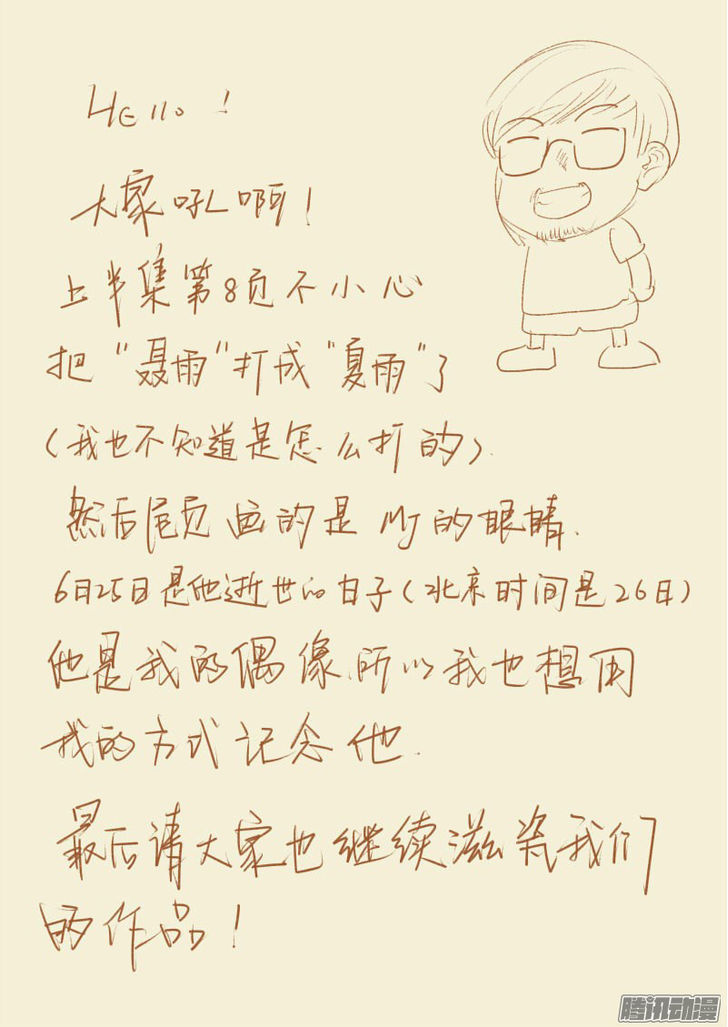 Hello！
大家吼啊！
上半集第8页不小心
把“聂雨”打成“夏雨”了
（我也不知道是怎么打的）.
然后尾页画的是MJ的眼睛.
6月25日是他逝世的日子（北京时间是26日）
他是我的偶像.所以我也想用
我的方式记念他.
最后请大家也继续滋瓷我们
的作品！
腾讯动漫